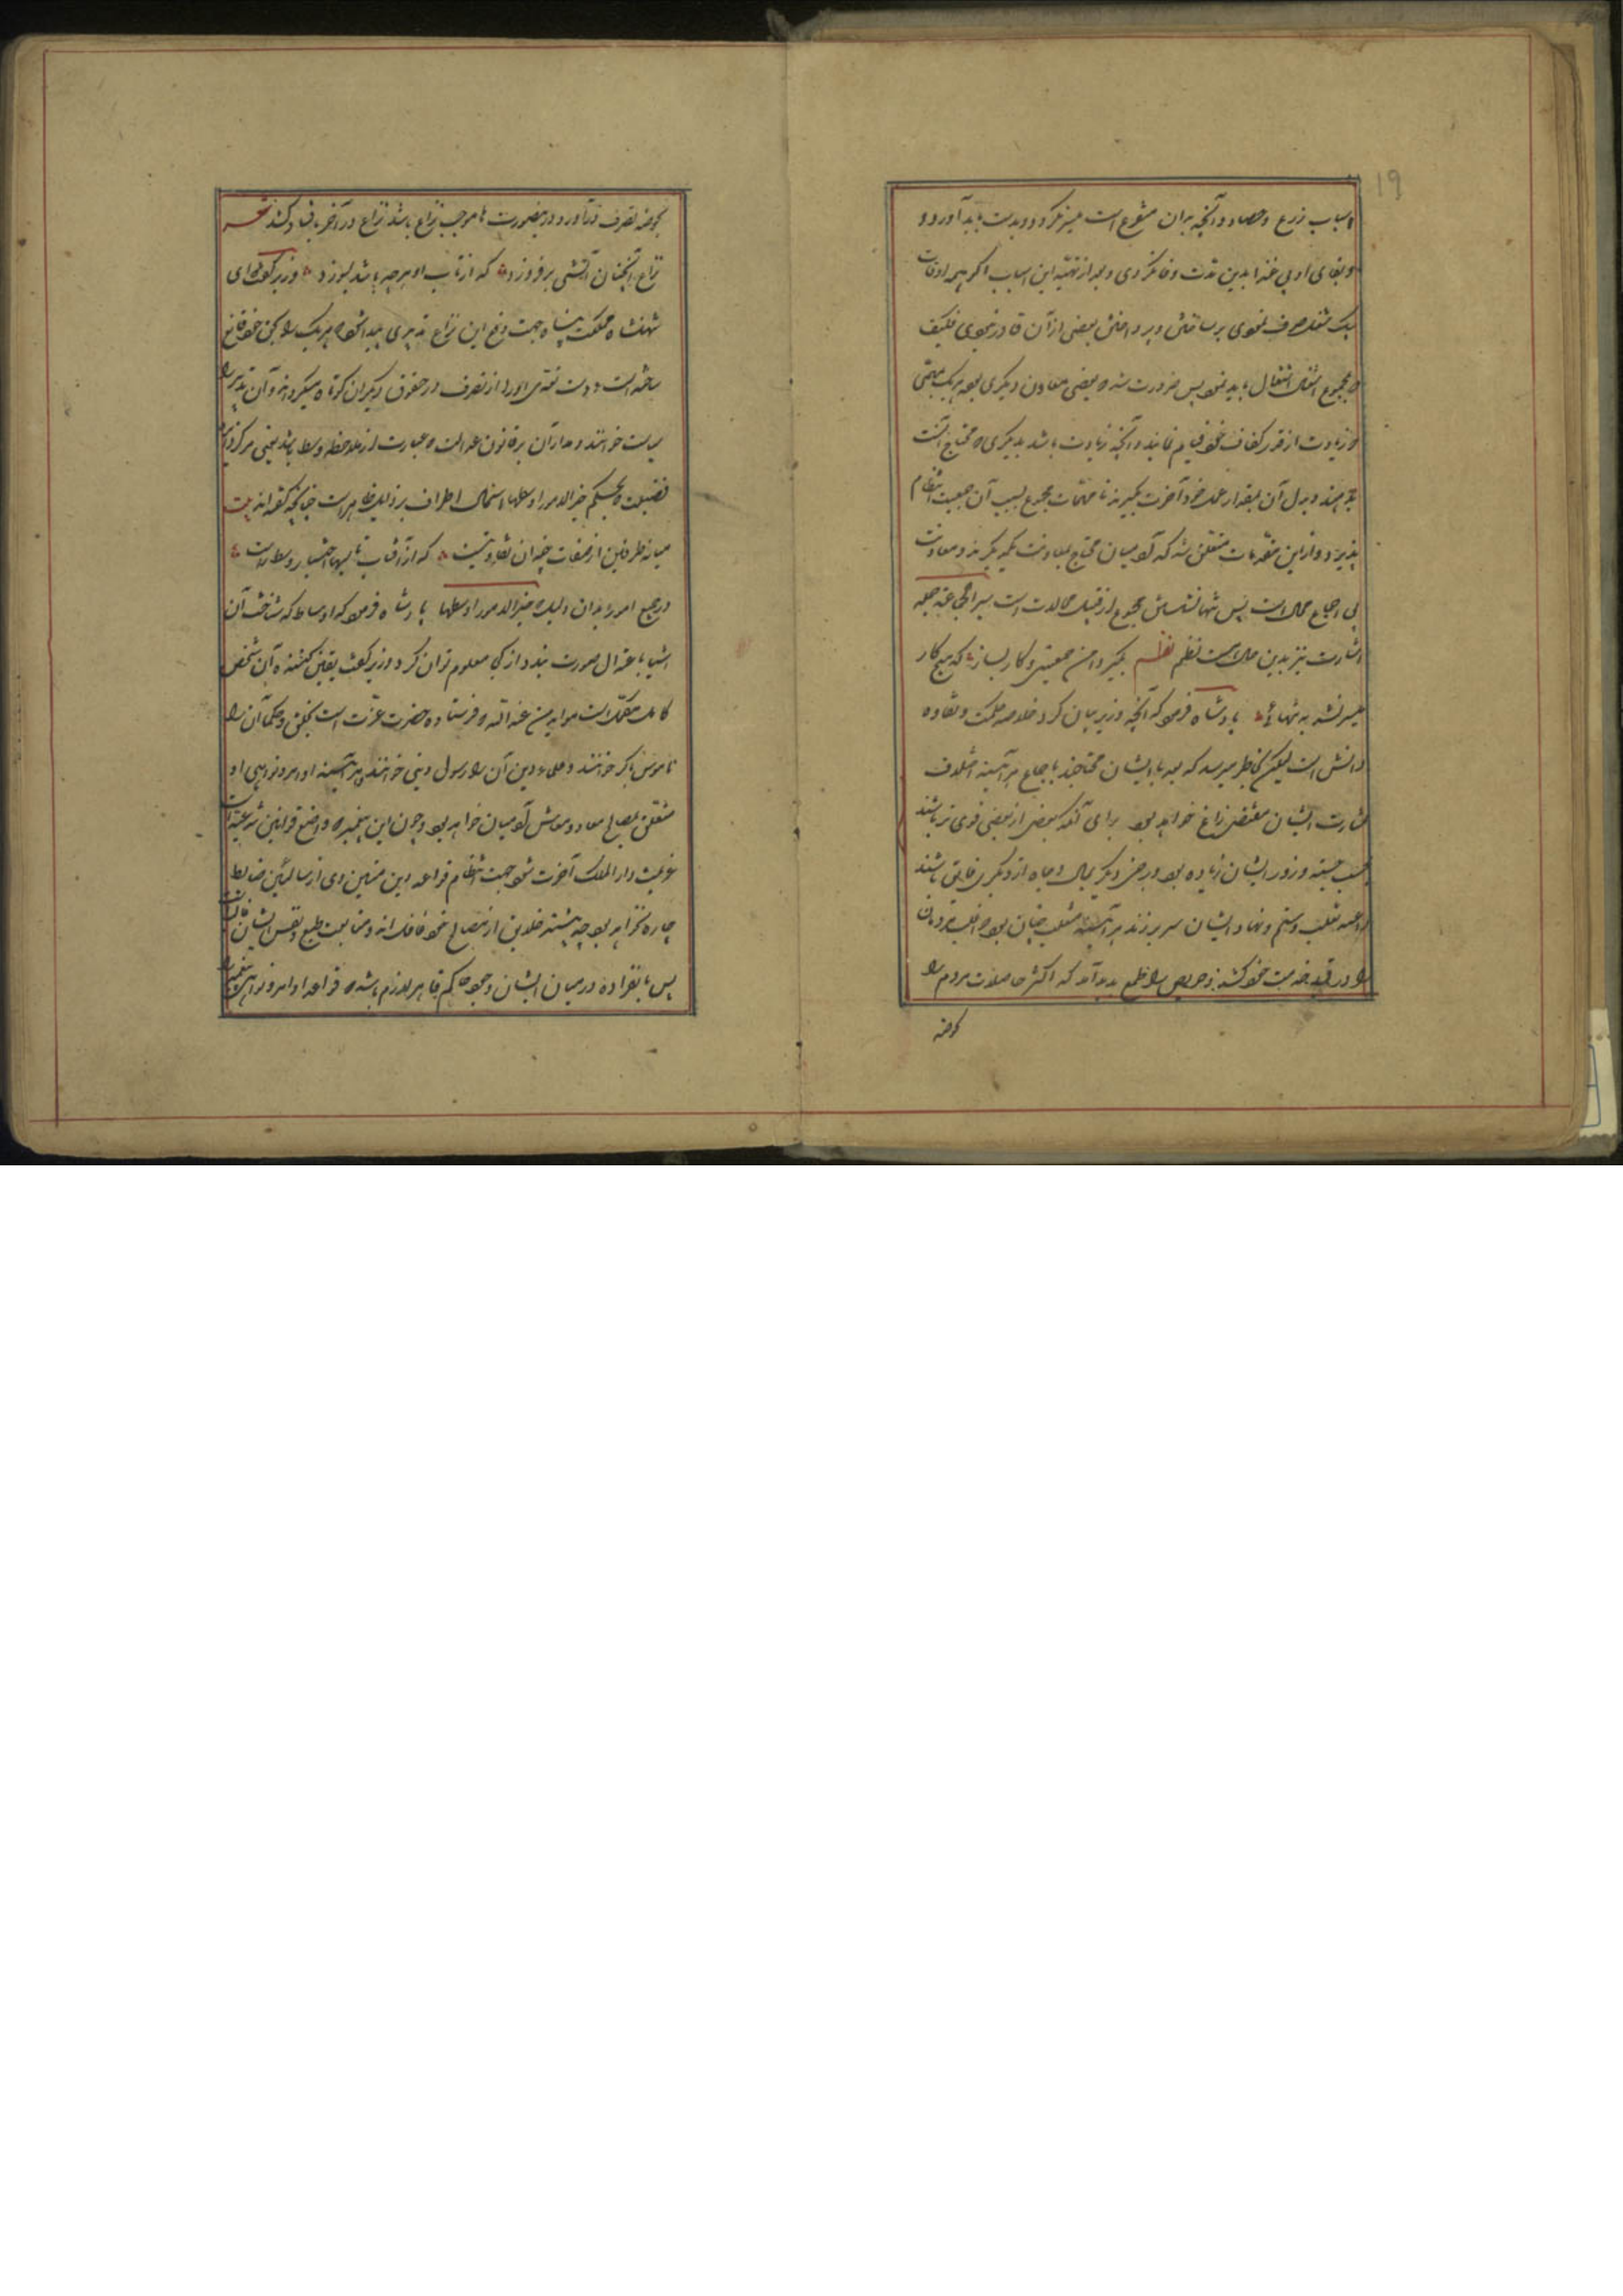 ۱۹
اسباب زرع و حصاد و آنچه بران متفرع است میسر نگردد و بدست باید آورد و
و بقای او بی غذا بدین مدت وفا نکردی و بعد از تهیه این اسباب اگر همه اوقات
بیک شغل صرف نمودی بر ساختن و پرداختن بعضی از آن قادر نبودی فکیف
که بمجموع اشغال اشتغال باید نمود پس ضرورت شد که بعضی معاون دیگری بوده هر یک بمهمی
و زیادت از قدر کفاف خود قیام نمایند و آنچه زیادت باشد بدیگری که محتاج آنست
بدهند و بدل آن بمقدار عمل خود اجرت بگیرند تا مهمات مجموع بسبب آن جمعیت انتظام
پذیرد و ازین مقدمات متعلق شد که آدمیان محتاج بمعاونت یکدیگرند و معاونت
بی اجتماع محالست پس تنها نشستن مجموع از قبیل محالات است
اشارت نیز بدین حالست نظم بگیر دامن جمعیتی و کار بساز که هیچ کار
میسر نشد به تنهائی پادشاه فرمود که آنچه وزیر بیان کرد خلاصه حکمت و نقاوه
دانش است لیکن بخاطر میرسد که چون ایشان محتاجند باجتماع هر آئینه اختلاف
مشارب ایشان مقتضی نزاع خواهد بود برای آنکه بعضی از بعضی قوی تر باشند
بحسب جثه و زور ایشان زیاده بود و برخی دیگر بمال و جاه از دیگری فایق باشند
داعیه تغلب و ستم و نهاد ایشان سر بر زند هر آئینه متغلب چنان بود که اغلب مردمان
را در قید خدمت خود کشند و حریص را طمع پدید آمد که اکثر حاصلات مردم را
بحوضه
بحوضه تصرف درآورد و در ینصورت ها موجب نزاع باشد و نزاع در آخر بافساد کشد شعر
نزاع آنچنان آتشی بر فروزد که از تاب او هر چه باشد بسوزد وزیر گفت ای
شهنشاه مملکت پناه جهت دفع این نزاع تدبیری باید که هر یک را بحق خود قانع
ساخته است و دست تعدی او را از تصرف در حقوق دیگران کوتاه میگرداند و آن تدبیر را
سیاست خوانند و مدار آن بر قانون عدالت که عبارت از ملاحظه وسط باشد یعنی مرکز دایره
فضیلت و بحکم خیر الامور اوسطها استکمال اطراف بر ذایل ظاهر است چنانچه گفته اند بیت
میانه طرفین از صفات چندان تفاوتست که از آفتاب تا بسها اختیار وسط راست
در جمیع امور بدان دلیل خیر الامور اوسطها پادشاه فرمود که اوساط که شناخت آن
اشیا باعتدال صورت بندد از کجا معلوم توان کرد وزیر گفت تعیین کننده آن شخص
کامل مکملست موید من عند الله و فرستاده حضرت عزت است بخلق و حکما آن را
ناموس اکبر خوانند و علمای دین آن را رسول و نبی خوانند و هر آئینه اوامر و نواهی او
متعلق بمصالح معاد و معاش آدمیان خواهد بود و چون این پیغمبر که واضع قوانین شریعتست
عزیمت دار الملک آخرت نمود جهت انتظام قواعد دین متین وی از سیاست ضابط
چاره نخواهد بود چه بیشتر خلایق از مصالح خود غافل اند و متابعت طبع و نفس ایشان غالبست
پس بالضروره در میان ایشان وجود حاکم قاهر لازم باشد که قواعد اوامر و نواهی پیغمبر را